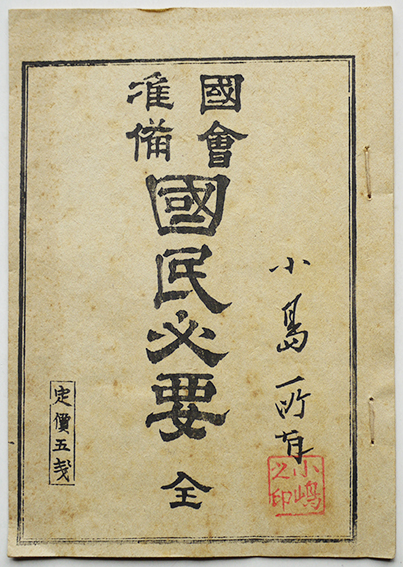 國會
准備
國民必要 全
小島所有
小嶋之印
定價五戔